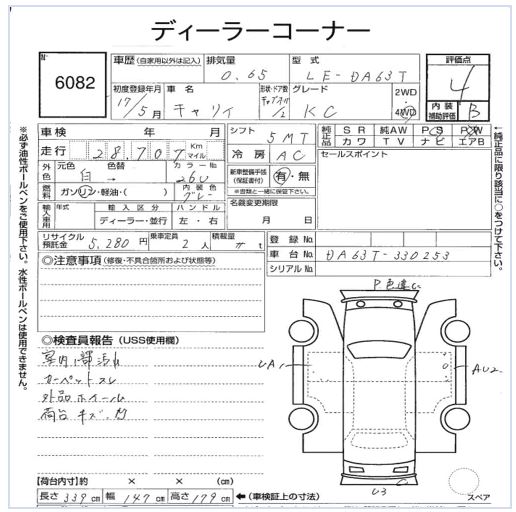 ディーラーコーナー
No 6082
車歴 (自家用以外は記入) 排気量 0.65 型式 LE-DA63T 評価点 4
初度登録年月 17/5月 車名 キャリィ 形状・ドア数 /2 グレード KC 2WD 4WD 内装補助評価 B
車検 年 月 シフト 5MT 純正品 SR 純AW PS PW
カワ TV ナビ エアB
走行 28,707 Km マイル 冷房 AC セールスポイント
外色 元色 白 色替 → カラーNo 26U 新車整備手帳(保証書) 有・無
※書類と一緒に保管下さい。
燃料 ガソリン・軽油・( ) 内装色 グレー 名義変更期限 月 日
輸入車用 年式 輸入区分 ディーラー・並行 ハンドル 左・右
リサイクル預託金 5,280円 乗車定員 2人 積載量 登録No.
車台No. DA63T-330253
シリアルNo.
◎注意事項 (修復・不具合箇所および状態等)
P色違い
◎検査員報告 (USS使用欄)
室内 汚れ
カーペットスレ
外品ホイール
荷台キズ、凹
UA1
AU2
U3
スペア
【荷台内寸】約 × × (cm)
長さ 339cm 幅 147cm 高さ 179cm ←(車検証上の寸法)
※必ず油性ボールペンをご使用下さい。水性ボールペンは使用できません。
←純正品に限り該当に○をつけて下さい。